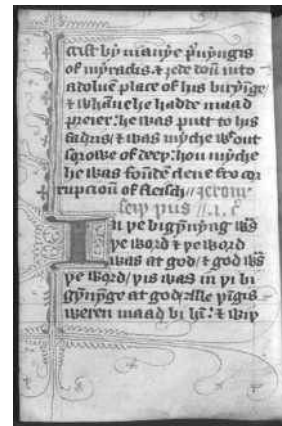 crist bẏ manẏe p̉uẏngis
of mẏraclis ⁊ ȝede doũ in to
a doluē place of his birẏĩge/
⁊ whāne he hadde maad
preier: he was putt to his
fadris/ ⁊ was mẏche wͭout
sorowe of deeþ: hou mẏche
he was foūde clene fro cor
rupcioū of fleisch// ierom
seiþ þus // .1. c̊
In þe bigẏnẏng was
þe word ⁊ þe word
was at god/ ⁊ god was
þe word/ þis was in þe bi
gẏnẏge at god/ alle þīgis
weren maad bi hī: ⁊ wiþ